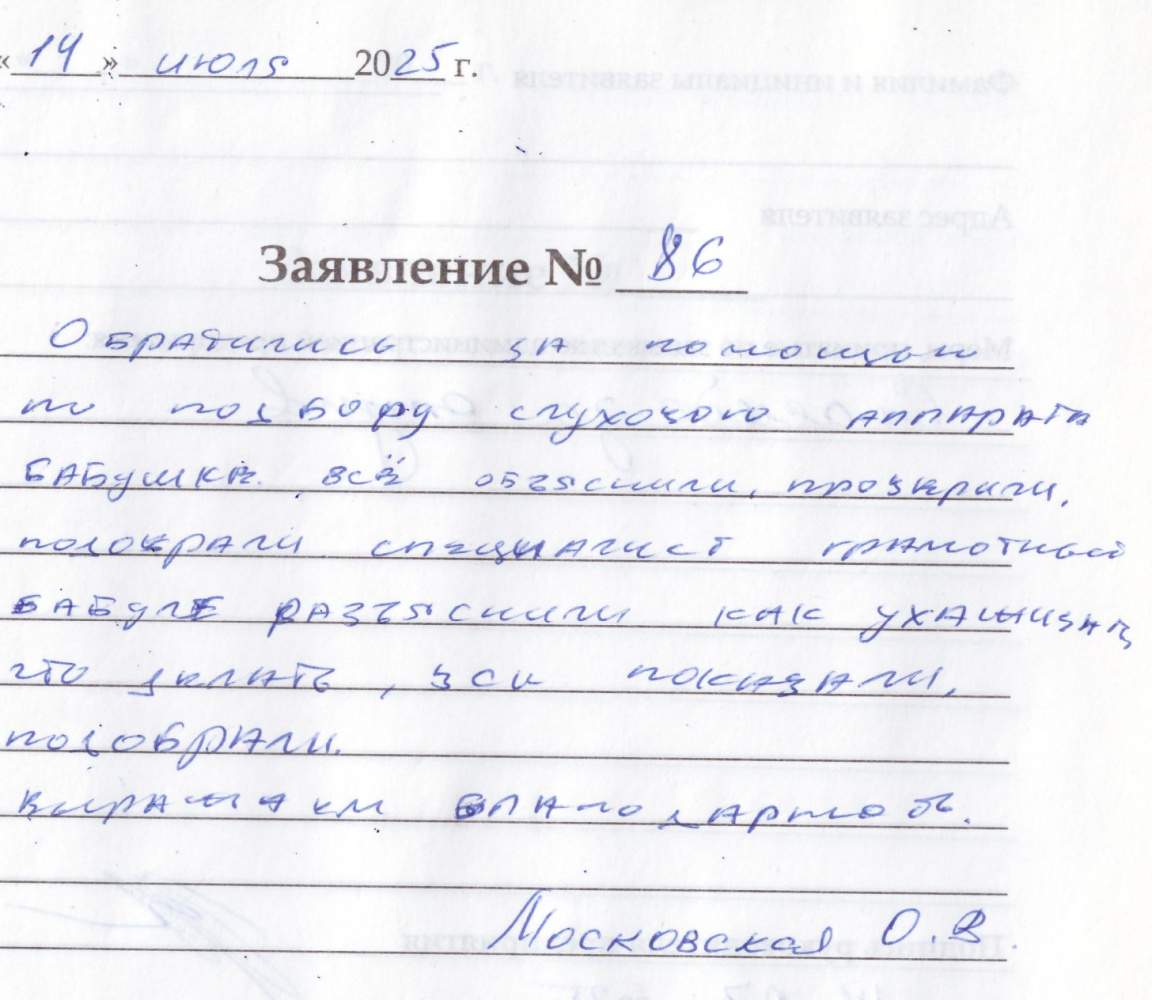 «14» июля 2025 г.
Заявление № 86
Обратились за помощью
по подбору слухового аппарата
бабушке. всё объяснили, проверили,
подобрали специалист грамотный
бабуле разъяснили как ухаживать,
что делать, все показали,
подобрали.
Выражаем благодарность.
Московская О.В.